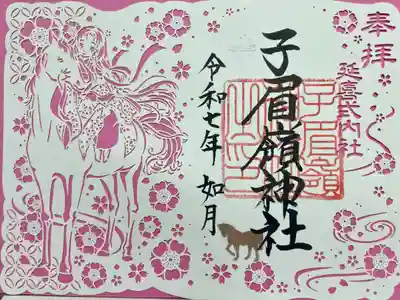 奉拝
延喜式内社
子眉嶺神社
子眉嶺
令和七年 如月